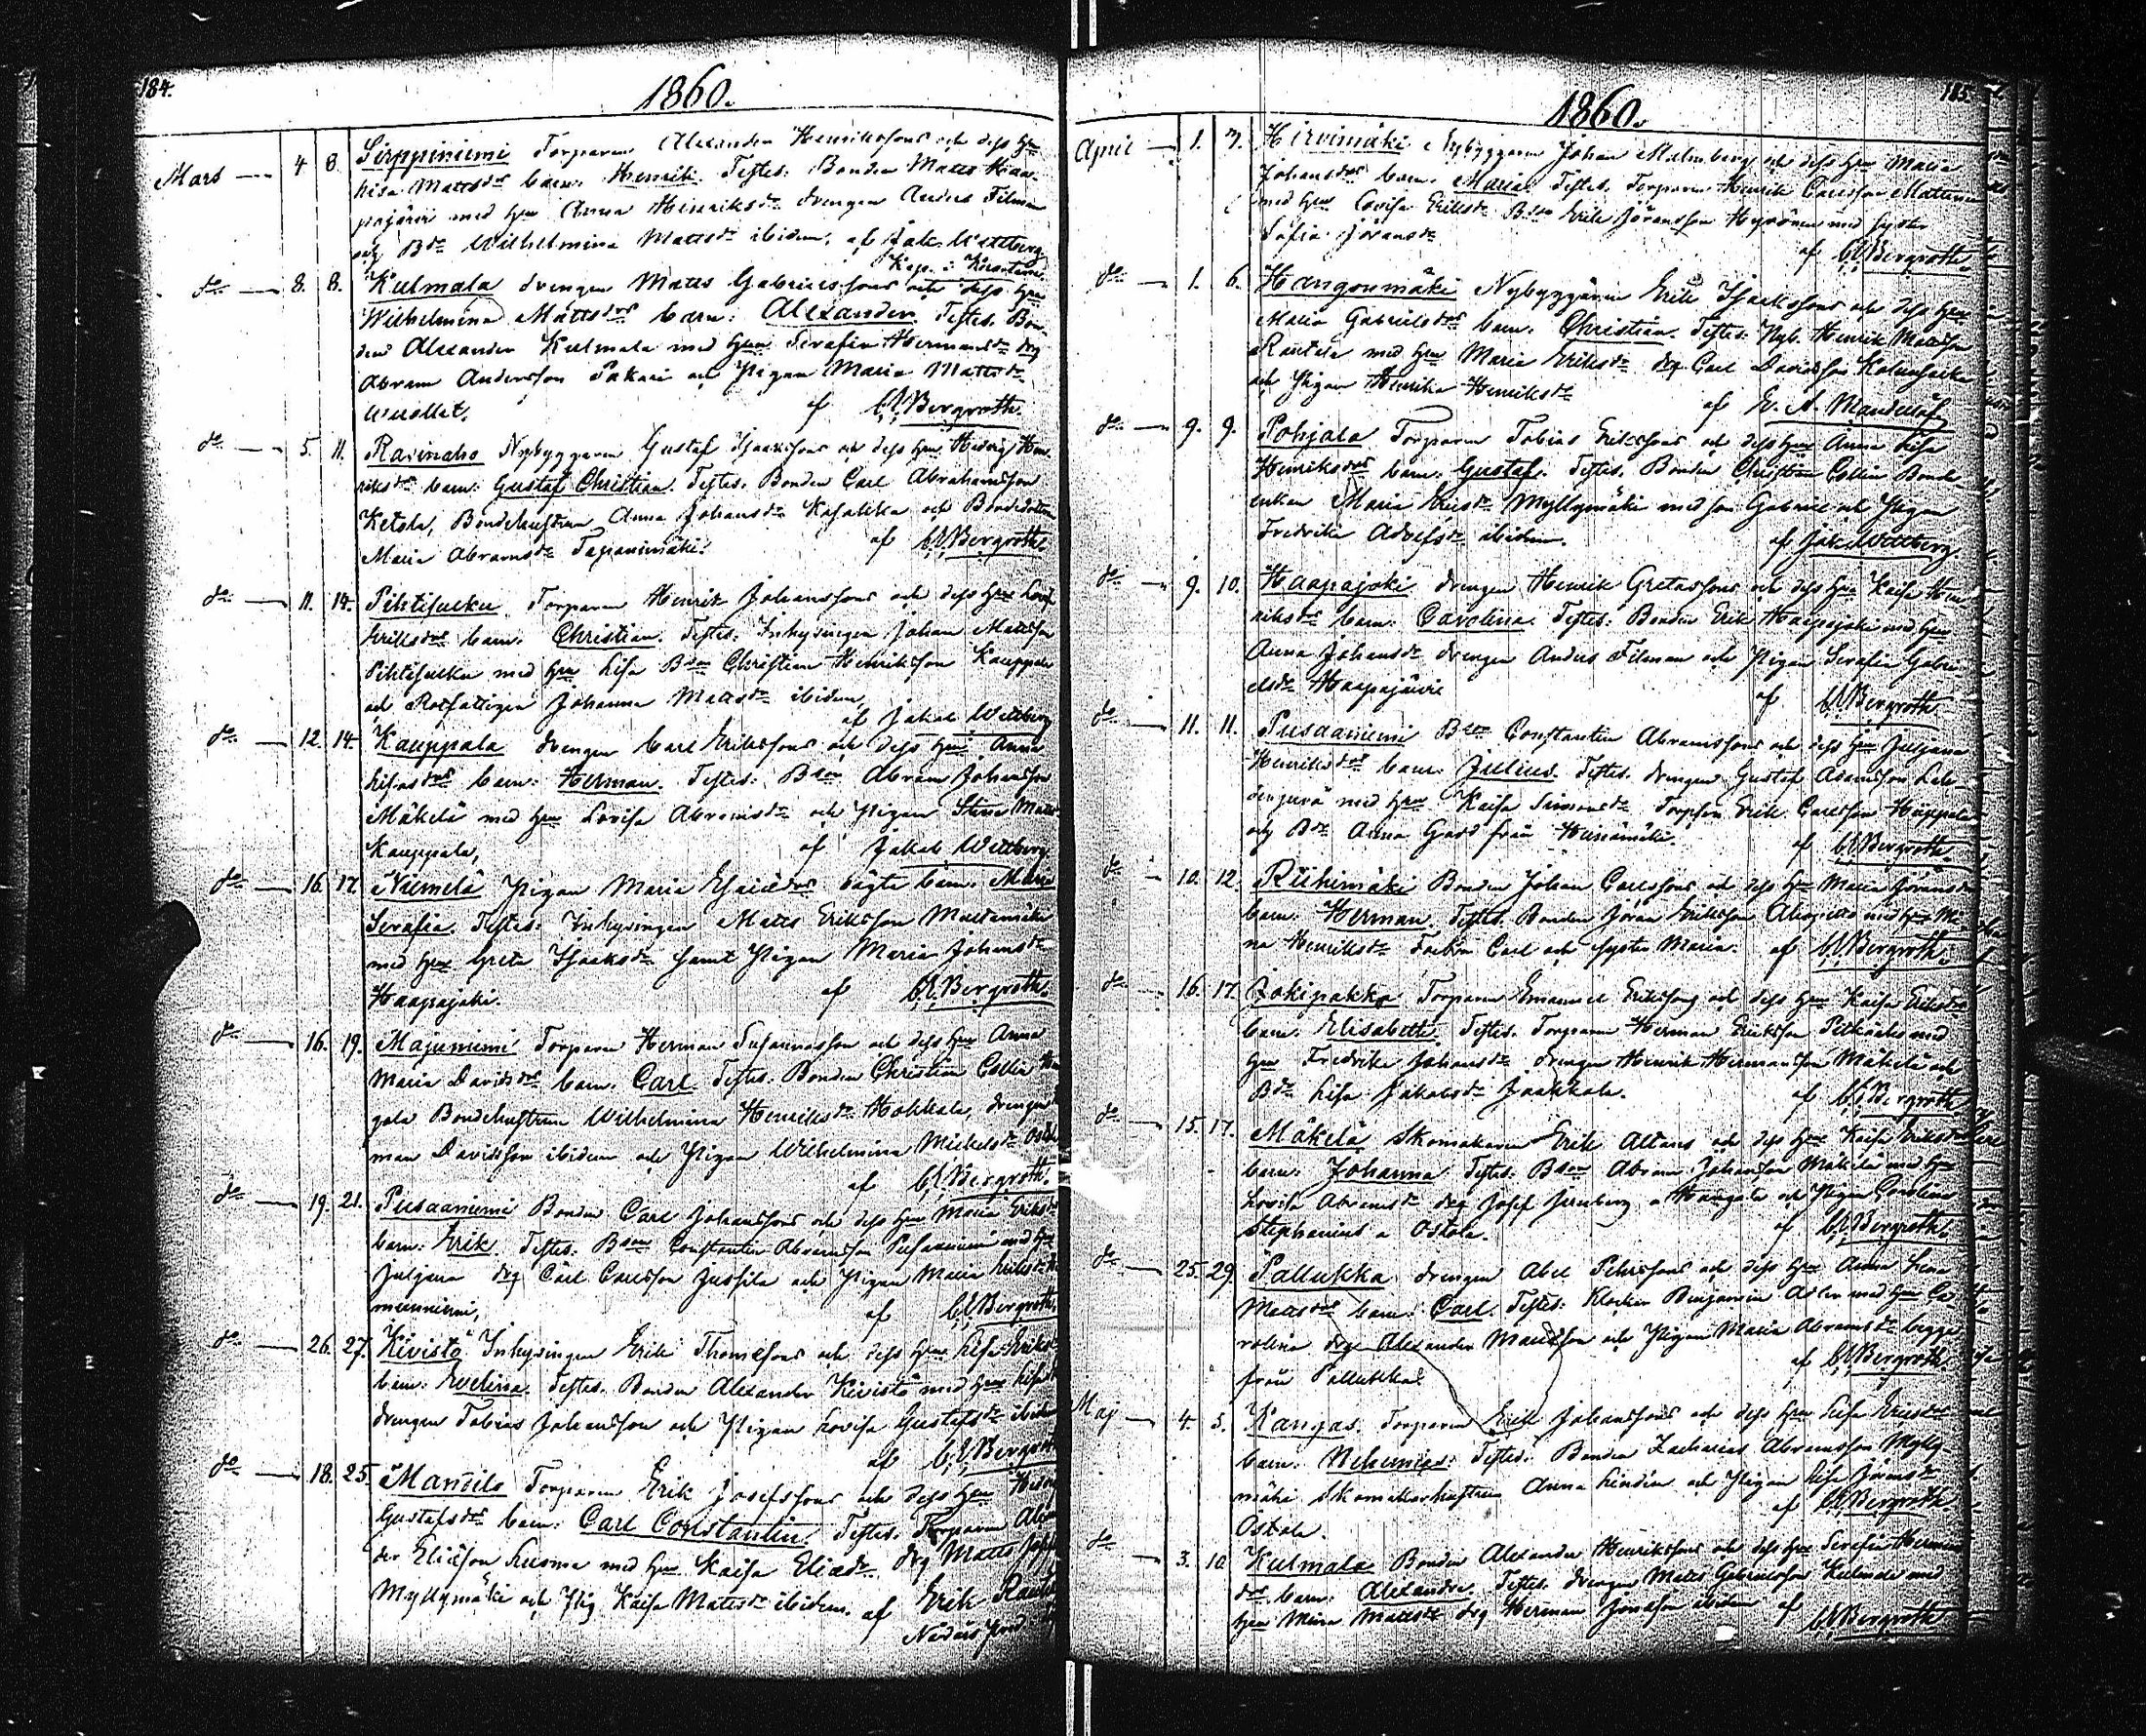 184.
1860.
Mars 4 8. Sirppiniemi Torparen Alexander Henrikssons och dess hu
Lisa Mattsdrs barn: Henrik. Testes: Bonden Matts Haa-
pajärvi med hu Anna Henriksdr drengen Anders Filman
och Bdr Wilhelmina Mattsdr ibidem. af Jak. Wettberg
Kap. i
do 8. 8. Kulmala drengen Matts Gabrielssons och dess hu
Wilhelmina Mattsdrs barn: Alexander. Testes. Bon-
den Alexander Kulmala med hu Serafia Hermansdr dg
Abram Andersson Pakari och Pigan Maria Mattsdr
af C.E. Bergroth.
do 5. 11. Nybyggaren Gustaf Isaakssons och dess hu Hedvig Hen-
riksdrs barn: Gustaf Christian. Testes. Bonden Carl Abrahamsson
Ketola, Bondehustrun Anna Johansdr Kasakka och Bondedottren
Maria Abramsdr Tapanimäki. af C.E. Bergroth.
do 11. 14. Pihtisulku Torparen Henrik Johanssons och dess hu Lovisa
Eriksdrs barn. Christian. Testes: Inhysingen Johan Mattsson
Pihtisulku med hu Lisa Bson Christian Henriksson Kauppala
och Rotfattigen Johanna Mattsdr ibidem,
af Jakob Wettberg
do 12. 14. Kauppala drengen Carl Erikssons och dess hu Anna
Lisasdrs barn: Herman. Testes: Bson Abram Johansson
Mäkelä med hu Lovisa Abramsdr och Pigan Stina Matts
Kauppala, af Jakob Wettberg
do 16. 17. Niemelä Pigan Maria Esaiædrs oägta barn. Maria
Serafia. Testes: Inhysingen Matts Eriksson Mustamäki
med hu Greta Isaaksdr samt Pigan Maria Johansdr
Haapajoki. af C.E. Bergroth.
do 16. 19. Majuniemi Torparen Herman Susannasson och dess hu Anna
Maria Davidsdrs barn. Carl. Testes: Bonden Christian Collin
Bondehustrun Wilhelmina Henriksdr Hokkala, drengen
man Davidsson ibidem och Pigan Wilhelmina Mickelsdr Ostola
af C.E. Bergroth.
do 19. 21. Pusaaniemi Bonden Carl Johanssons och dess hu Maria Eriksdrs
barn: Erik. Testes: Bson Constantin Abramsson Pusaaniemi med hu
Juljana dg Carl Carlsson Jussila och Pigan Maria Eriksdr
af C.E. Bergroth.
do 26. 27. Kivistö Inhysingen Erik Thomassons och dess hu Lisa Eriksdrs
barn: Evelina. Testes. Bonden Alexander Kivistö med hu Lisa
drengen Tobias Johansson och Pigan Lovisa Gustafsdr ibidem
af C.E. Bergroth
do 18. 25. Torparen Erik Josefssons och dess hu
Gustafsdrs barn: Carl Constantin. Testes. Torparen Alexan-
der Eliasson med hu Kaisa Eliædr. dg Matts
Myllymäki och Pig Kaisa Mattsdr ibidem. af Erik
185.
1860.
April 1. 7. Hirvimäki Nybyggaren Johan Malmberg och dess hu Maria
Johansdrs barn. Maria. Testes. Torparen Henrik Carlsson Mattinen
med hu Lovisa Eriksdr Bson Erik Jöransson Hyvönen med syster
Sofia Jöransdr
af C.E. Bergroth.
do 1. 6. Hangonmäki Nybyggaren Erik Isaakssons och dess hu
Maria Gabrielsdrs barn. Christian. Testes: Nyb. Henrik Mattsson
Rantala med hu Maria Eriksdr dg Carl Davidsson
och Pigan Henrika Henriksdr
af E. A. Mandellöf
do 9. 9. Pohjala Torparen Tobias Erikssons och dess hu Anna Lisa
Henriksdrs barn: Gustaf. Testes. Bonden Christian Collin Bonde-
enkan Maria Ericsdr Myllymäki med son Gabriel och Pigan
Fredrika Adolfsdr ibidem. af Jak. Wettberg.
do 9. 10. Haapajoki drengen Henrik Gretassons och dess hu Kaisa Hen-
riksdrs barn: Carolina. Testes: Bonden Erik Haapajoki med hu
Anna Johansdr drengen Anders Filman och Pigan Serafia Gabri-
elsdr Haapajärvi
af C.E. Bergroth.
do 11. 11. Pusaaniemi Bson Constantin Abramssons och dess hu Juljana
Henriksdrs barn: Julius. Testes. drengen Gustaf Adamsson
med hu Kaisa Simonsdr Torpson Erik Carlsson Kauppala
och Bdr Anna från Heinämäki.
af C.E. Bergroth.
do 10. 12. Riihimäki Bonden Johan Carlssons och dess hu Maria Jöransdrs
barn. Herman. Testes. Bonden Jöran Eriksson Ahopelto med hu Mi-
na Henriksdr Carl och syster Maria. af C.E. Bergroth.
do 16. 17. Jokipakka Torparen Emanuel Erikssons och dess hu Kaisa Eriksdrs
barn. Elisabeth. Testes. Torparen Herman Eriksson med
hu Fredrika Johansdr drengen Henrik Hermansson Mäkelä och
Bdr Lisa Jakobsdr Jaakkola. af C.E. Bergroth
do 15. 17. Mäkelä Skomakaren Erik Altans och dess hu Kaisa Eriksdrs
barn: Johanna. Testes: Bson Abram Johansson Mäkelä med hu
Lovisa Abramsdr dg Josef Jernberg a Haugala och Pigan Carolina
Stephanius a Ostola. af C.E. Bergroth.
do 25. 29. Pallukka drengen Abel Pehrssons och dess hu Anna Lena
Mattsdrs barn: Carl. Testes: Klockar Benjamin Adler med hu Ca-
rolina dg Alexander Mattsson och Pigan Maria Abramsdr begge
från Pallukka. af C.E. Bergroth
Maj 4. 5. Kangas Torparen Erik Johanssons och dess hu Lisa Ericsdrs
barn: Nehemias. Testes: Bonden Zacharias Abramsson Mylly-
mäki Skomakarhustrun Anna Lindén och Pigan Lisa Jöransdr
Ostola. af C.E. Bergroth
do 3. 10. Kulmala Bonden Alexander Henrikssons och dess hu Serafia Hermans
drs barn: Alexandra. Testes. drengen Matts Gabrielsson Kulmala med
hu Mina Mattsdr dg Herman Jonasson ibidem af C.E. Bergroth.